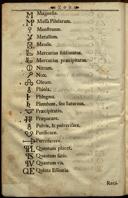 Magnesia.
Massa Pilularum.
Menstruum.
Metallum.
Mensis.
Mercurius sublimatus.
Mercurius præcipitatus.
Nitrum.
Nox.
Oleum.
Phiola.
Phlegma.
Plumbum, seu Saturnus.
Præcipitatio.
Præparare.
Pulvis, & pulverisare.
Purificare.
Putrefacere.
Quantum placet.
Quantum satis.
Quantum vis.
Quinta Essentia.